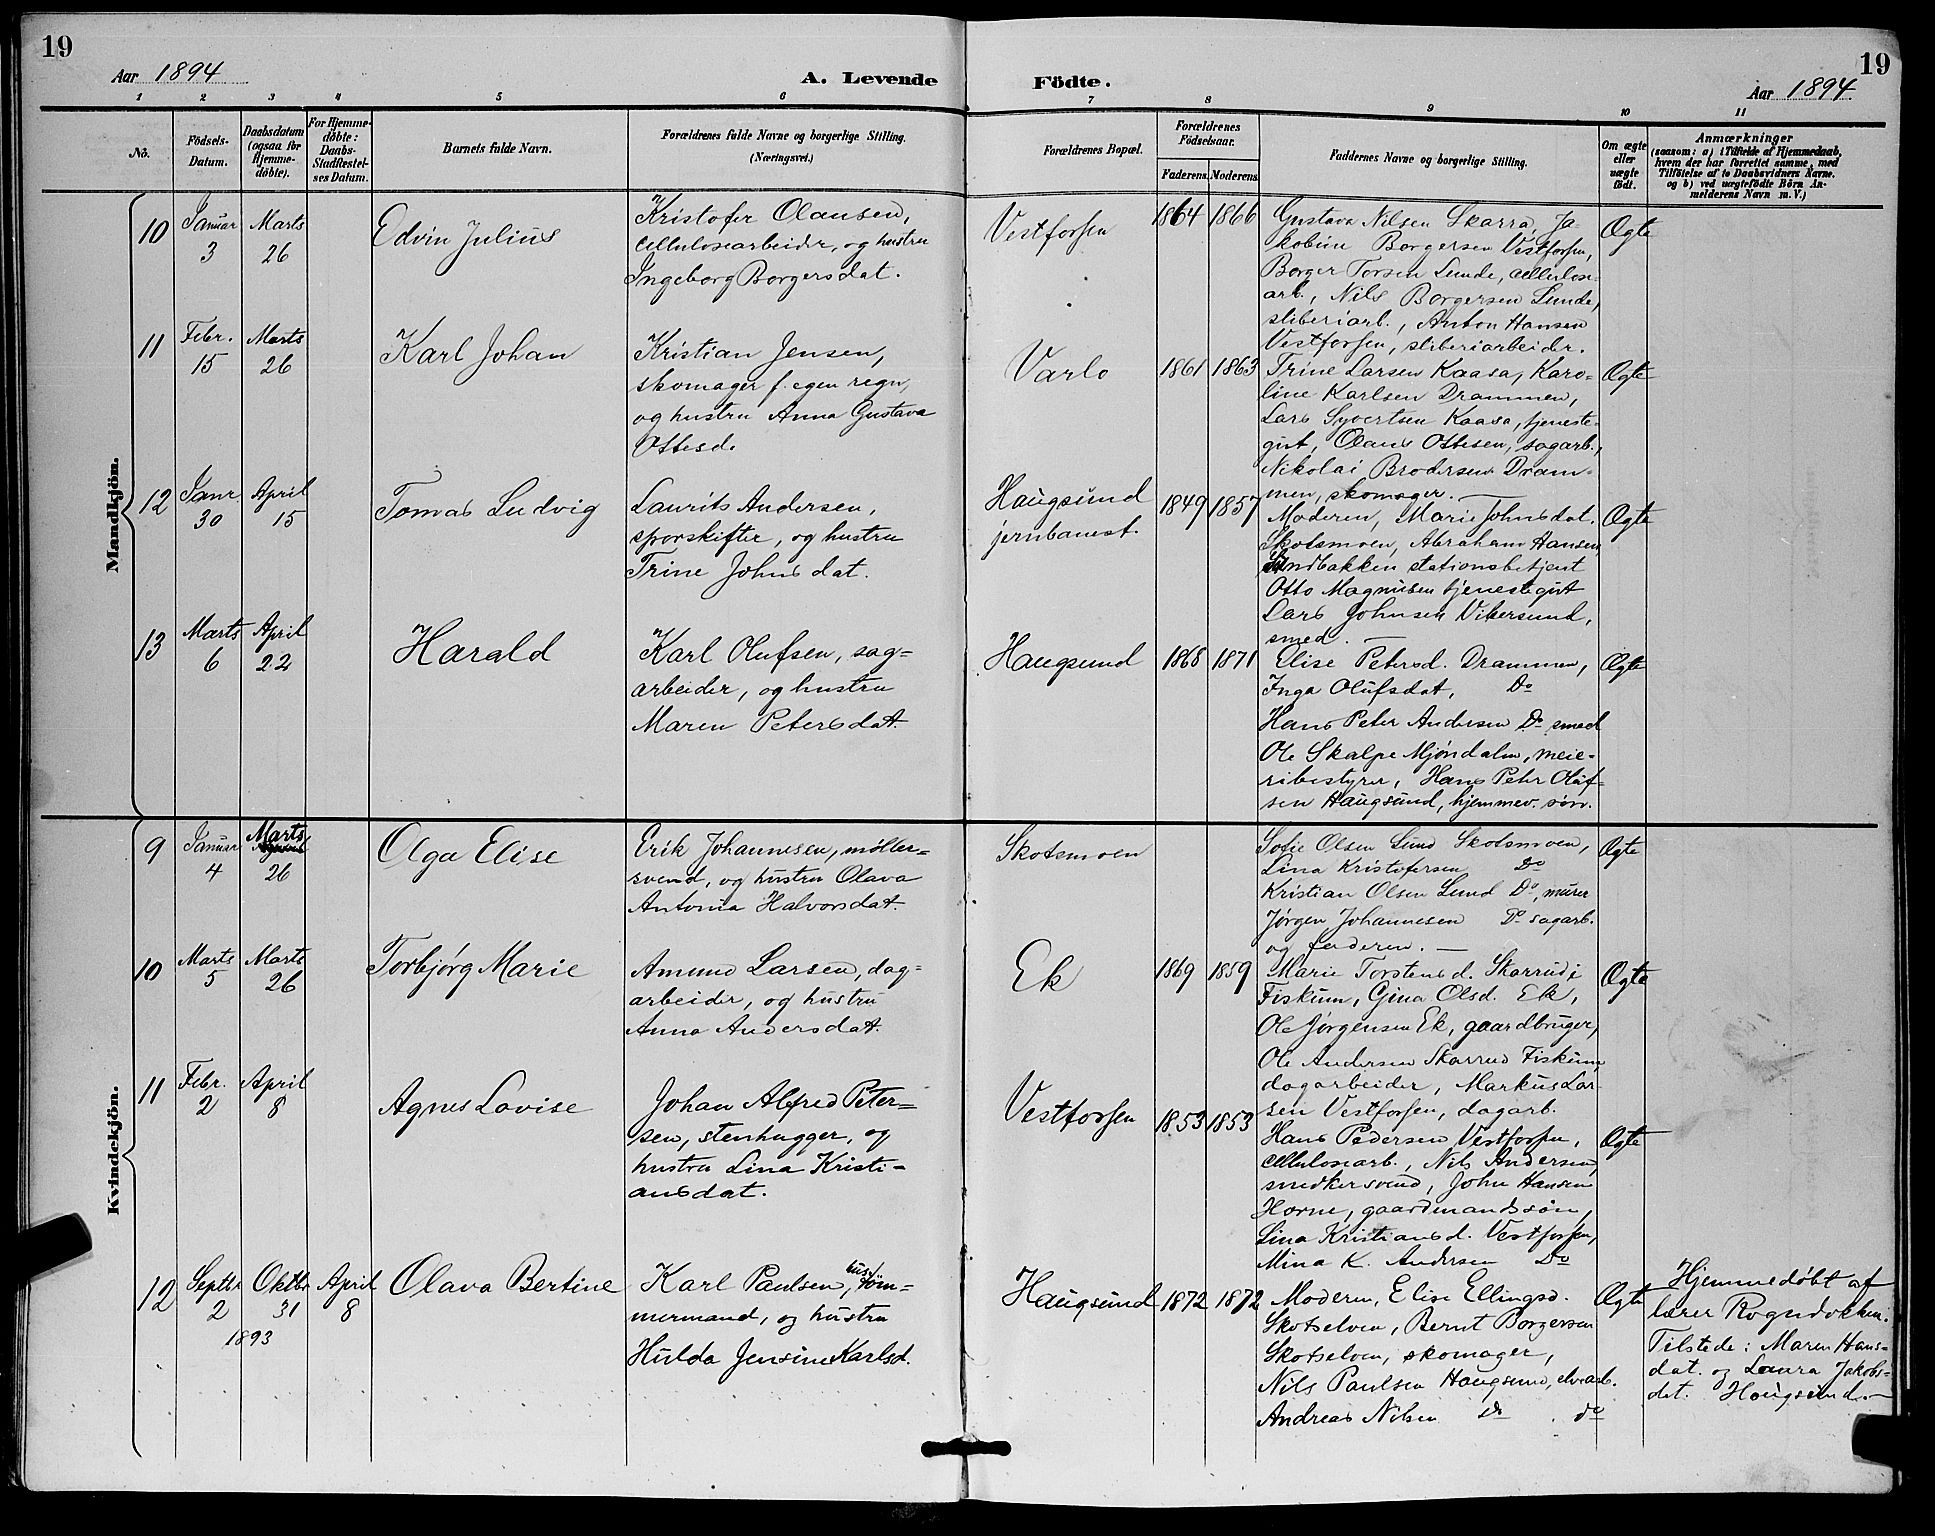 19
19
Aar 1894
A. Levende
Födte.
Aar 1894
1 2 3 4 5 6 7 8 9 10 11
No.
Födsels-
Datum.
Daabsdatum
(ogsaa for
Hjemme-
döbte).
For Hjemme-
döbte:
Daabs-
Stadfæstel-
ses Datum.
Barnets fulde Navn.
Forældrenes fulde Navne og borgerlige Stilling.
(Næringsvei.)
Forældrenes Bopæl.
Forældrenes
Födselsaar.
Faderens. Moderens.
Faddernes Navne og borgerlige Stilling.
Om ægte
eller
uægte
födt.
Anmærkninger
(saasom: a) i Tilfælde af Hjemmedaab,
hvem der har forrettet samme, med
Tilföielse af to Daabsvidners Navne.
og b) ved uægtefödte Börn An-
melderens Navn m. V.)
Mandkjön.
10
Januar
3
Marts
26
Edvin Julius
Kristofer Olausen,
cellulosearbeider, og hustru
Ingeborg Borgersdat.
Vestfossen
1864 1866
Gustava Nilsen Skarra, Ja-
kobine Borgersen Vestfossen,
Borger Torsen Lunde, cellulose-
arb., Nils Borgersen Lunde,
sliberiarb., Anton Hansen
Vestfossen, sliberiarbeider.
Ægte
11
Febr.
15
Marts
26
Karl Johan
Kristian Jensen,
skomager f. egen regn,
og hustru Anna Gustava
Ottesd.
Varlo
1861 1863
Trine Larsen Kaasa, Karo-
line Karlsen Drammen,
Lars Syvertsen Kaasa, tjeneste-
gut, Olaus Ottesen, sagarb.,
Nikolai Brodersen Dram-
men, skomager.
Ægte
12
Janr
30
April
15
Tomas Ludvig
Laurits Andersen,
sporskifter, og hustru
Trine Johnsdat.
Haugsund
jernbanest.
1849 1857
Moderen, Marie Johnsdat.
Skotsmoen, Abraham Hansen
Sandbakken stationsbetjent
Otto Magnusen tjenestegut
Lars Johnsen Vikersund,
smed.
Ægte
13
Marts
6
April
22
Harald
Karl Olufsen, sag-
arbeider, og hustru
Maren Petersdat.
Haugsund
1868 1871
Elise Petersd. Drammen,
Inga Olufsdat, Do
Hans Peter Andersen Do smed
Ole Skalpe Mjøndalen, meie-
ribestyrer, Hans Peter Oluf-
sen Haugsund, hjemmev. søn.
Ægte
Kvindekjön.
9
Januar
4
Marts
26
Olga Elise
Erik Johannesen, møller-
svend, og hustru Olava
Antonia Halvorsdat.
Skotsmoen
Sofie Olsen Lund Skotsmoen,
Lina Kristofersen Do
Kristian Olsen Lund Do, murer
Jørgen Johannesen Do sagarb.
og faderen. —
Ægte
10
Marts
5
Marts
26
Torbjørg Marie
Amund Larsen, dag-
arbeider, og hustru
Anna Andersdat.
Ek
1869 1859
Marie Torstensd. Skarrud i
Fiskum, Gina Olsd. Ek,
Ole Jørgensen Ek, gaardbruger,
Ole Andersen Skarrud Fiskum,
dagarbeider, Markus Lar-
sen Vestfossen, dagarb.
Ægte
11
Febr.
2
April
8
Agnes Lovise
Johan Alfred Peter-
sen, stenhugger, og
hustru Lina Kristi-
ansdat.
Vestfossen
1853 1853
Hans Pedersen Vestfossen,
cellulosearb., Nils Andersen
snedkersvend, John Hansen
Horne, gaardmandssøn,
Lina Kristiansd. Vestfossen,
Mina K. Andersen Do
Ægte
12
Septbr
2
Oktbr
31
1893
April
8
Olava Bertine
Karl Paulsen, hustøm-
mermand, og hustru
Hulda Jensine Karlsd.
Haugsund
1872 1872
Moderen, Elise Ellingsd.
Skotselven, Bernt Borgersen
Skotselven, skomager,
Nils Paulsen Haugsund, elvearb.
Andreas Nilsen Do do
Ægte
Hjemmedøbt af
lærer Rogndokken.
Tilstede: Maren Hans-
dat. og Laura Jakobs-
dat. Haugsund. —